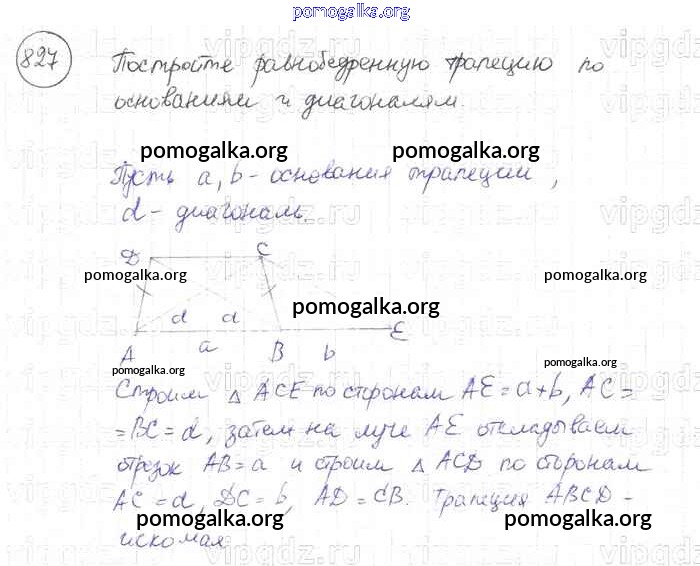 pomogalka.org
827
Постройте равнобедренную трапецию по
основаниям и диагоналям.
pomogalka.org pomogalka.org
Пусть a, b - основания трапеции,
d - диагональ.
D C
pomogalka.org pomogalka.org
pomogalka.org
d d
A a B b E
pomogalka.org
Строим △ ACE по сторонам AE = a+b, AC =
pomogalka.org
= BC = d, затем на луче AE откладываем
pomogalka.org pomogalka.org
отрезок AB = a и строим △ ACD по сторонам
AC = d, DC = b, AD = CB. Трапеция ABCD -
pomogalka.org pomogalka.org
искомая
vipgdz.ru